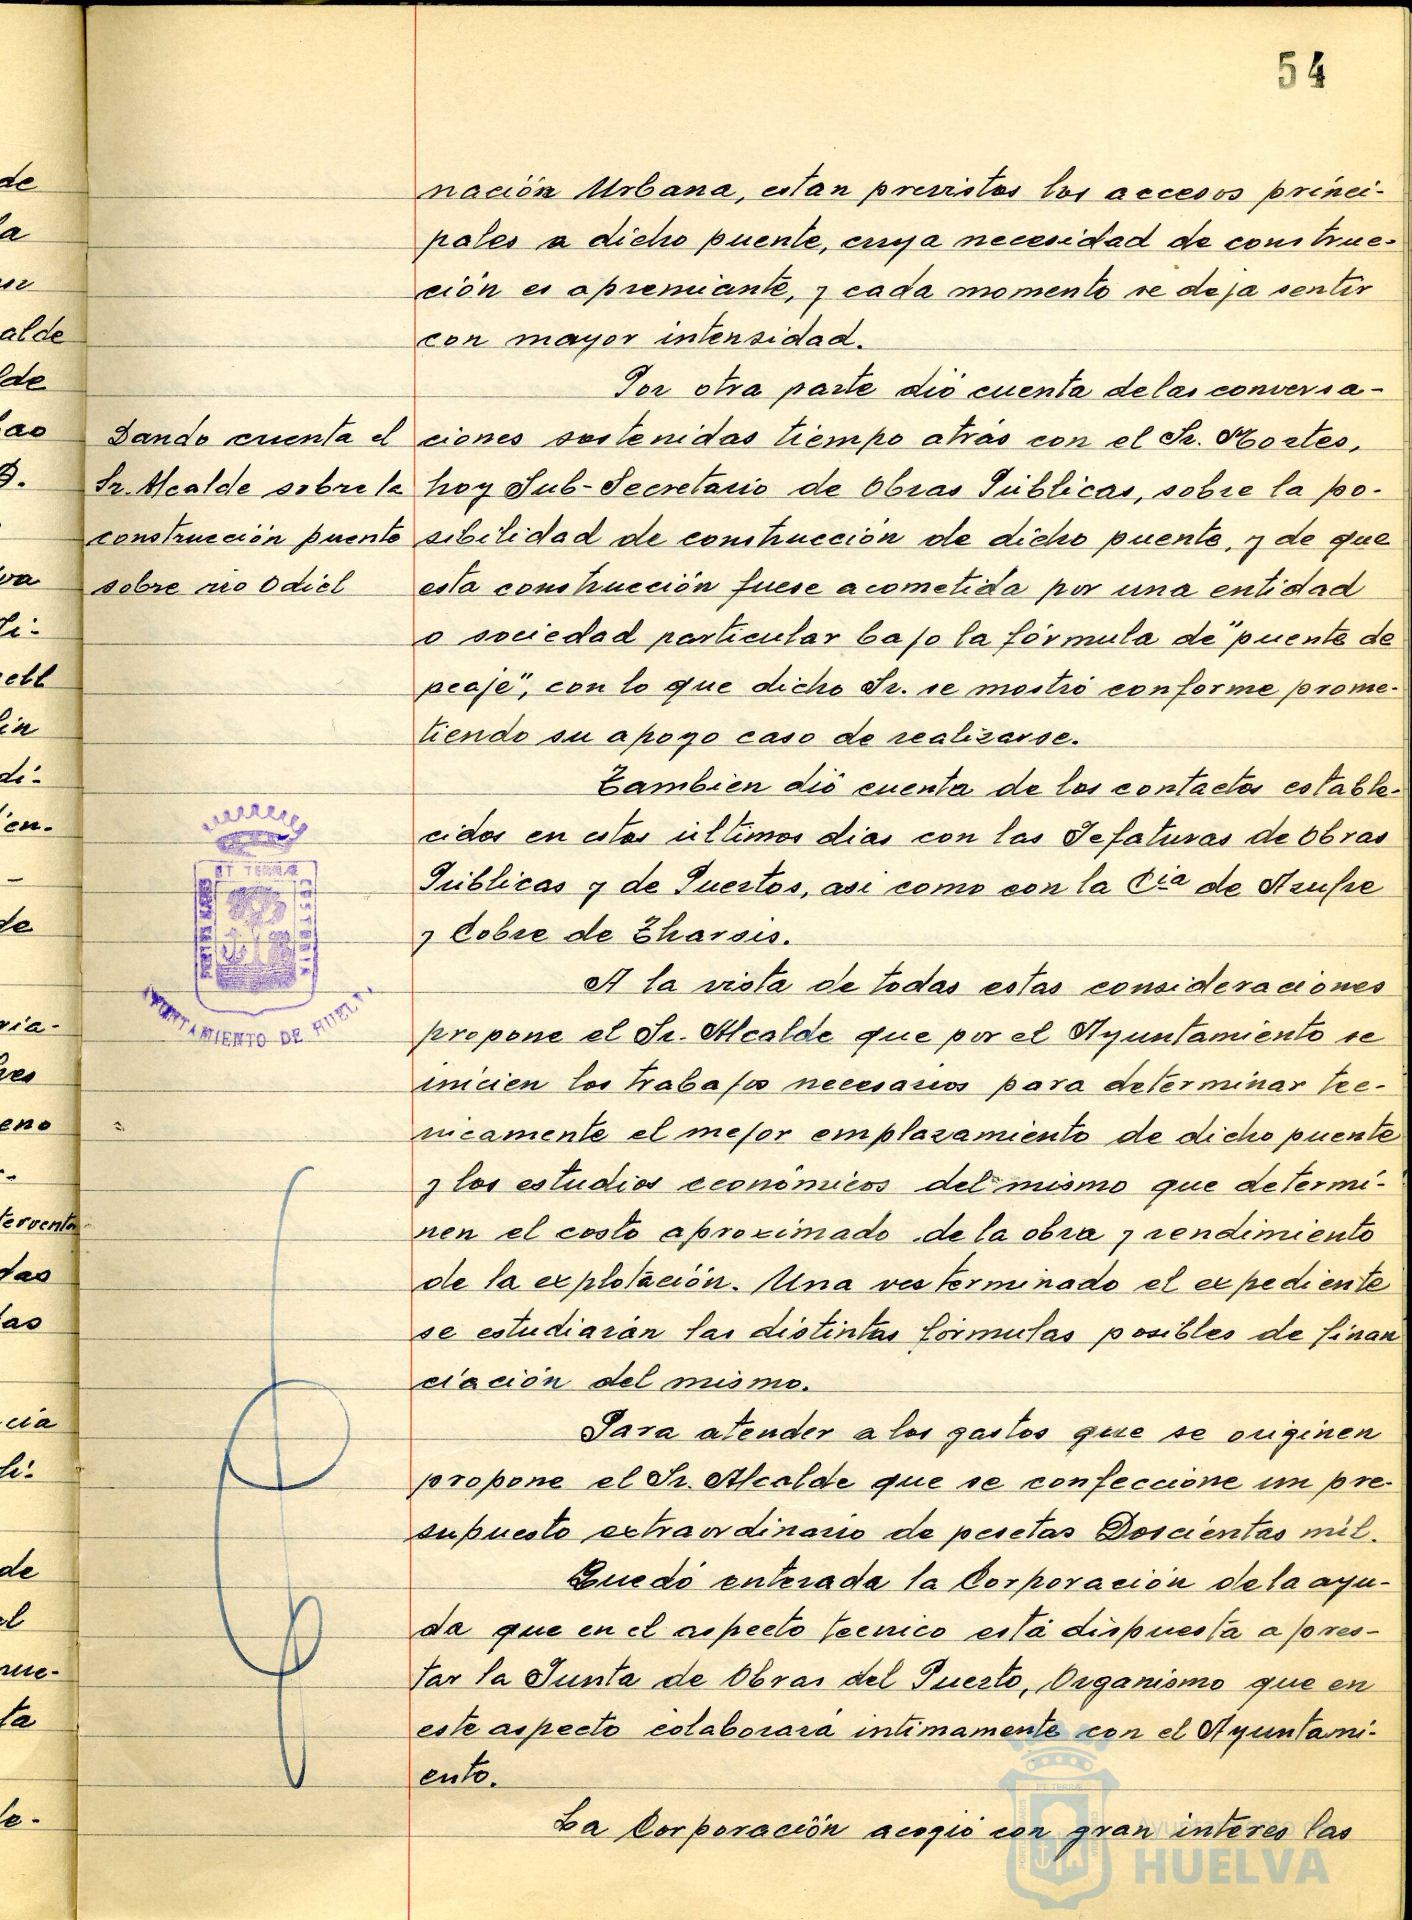 54
nación Urbana, estan previstos los accesos princi-
pales a dicho puente, cuya necesidad de construc-
ción es apremiante, y cada momento se deja sentir
con mayor intensidad.
Por otra parte dió cuenta de las conversa-
ciones sostenidas tiempo atrás con el Sr. Mortes,
hoy Sub-Secretario de Obras Públicas, sobre la po-
sibilidad de construcción de dicho puente, y de que
esta construcción fuese acometida por una entidad
o sociedad particular bajo la fórmula de "puente de
peaje", con lo que dicho Sr. se mostró conforme prome-
tiendo su apoyo caso de realizarse.
Dando cuenta el
Sr. Alcalde sobre la
construcción puente
sobre rio Odiel
Tambien dió cuenta de los contactos estable-
cidos en estos últimos dias con las Jefaturas de Obras
Públicas y de Puertos, asi como con la Cia de Azufre
y Cobre de Tharsis.
A la vista de todas estas consideraciones
propone el Sr. Alcalde que por el Ayuntamiento se
inicien los trabajos necesarios para determinar tec-
nicamente el mejor emplazamiento de dicho puente
y los estudios económicos del mismo que determi-
nen el costo aproximado de la obra y rendimiento
de la explotación. Una vez terminado el expediente
se estudiarán las distintas fórmulas posibles de finan
ciación del mismo.
Para atender a los gastos que se originen
propone el Sr. Alcalde que se confeccione un pre-
supuesto extraordinario de pesetas Doscientas mil.
Quedó enterada la Corporación de la ayu-
da que en el aspecto tecnico está dispuesta a pres-
tar la Junta de Obras del Puerto, Organismo que en
este aspecto colaborará intimamente con el Ayuntami-
ento.
La Corporación acogió con gran interes las
PORTUS MARIS
ET TERRÆ
CUSTODIA
AYUNTAMIENTO DE HUELVA
HUELVA
de
la
alde
lde
D.
va
li-
di-
en-
de
ria-
eno
das
las
cia
de
el
que-
ta